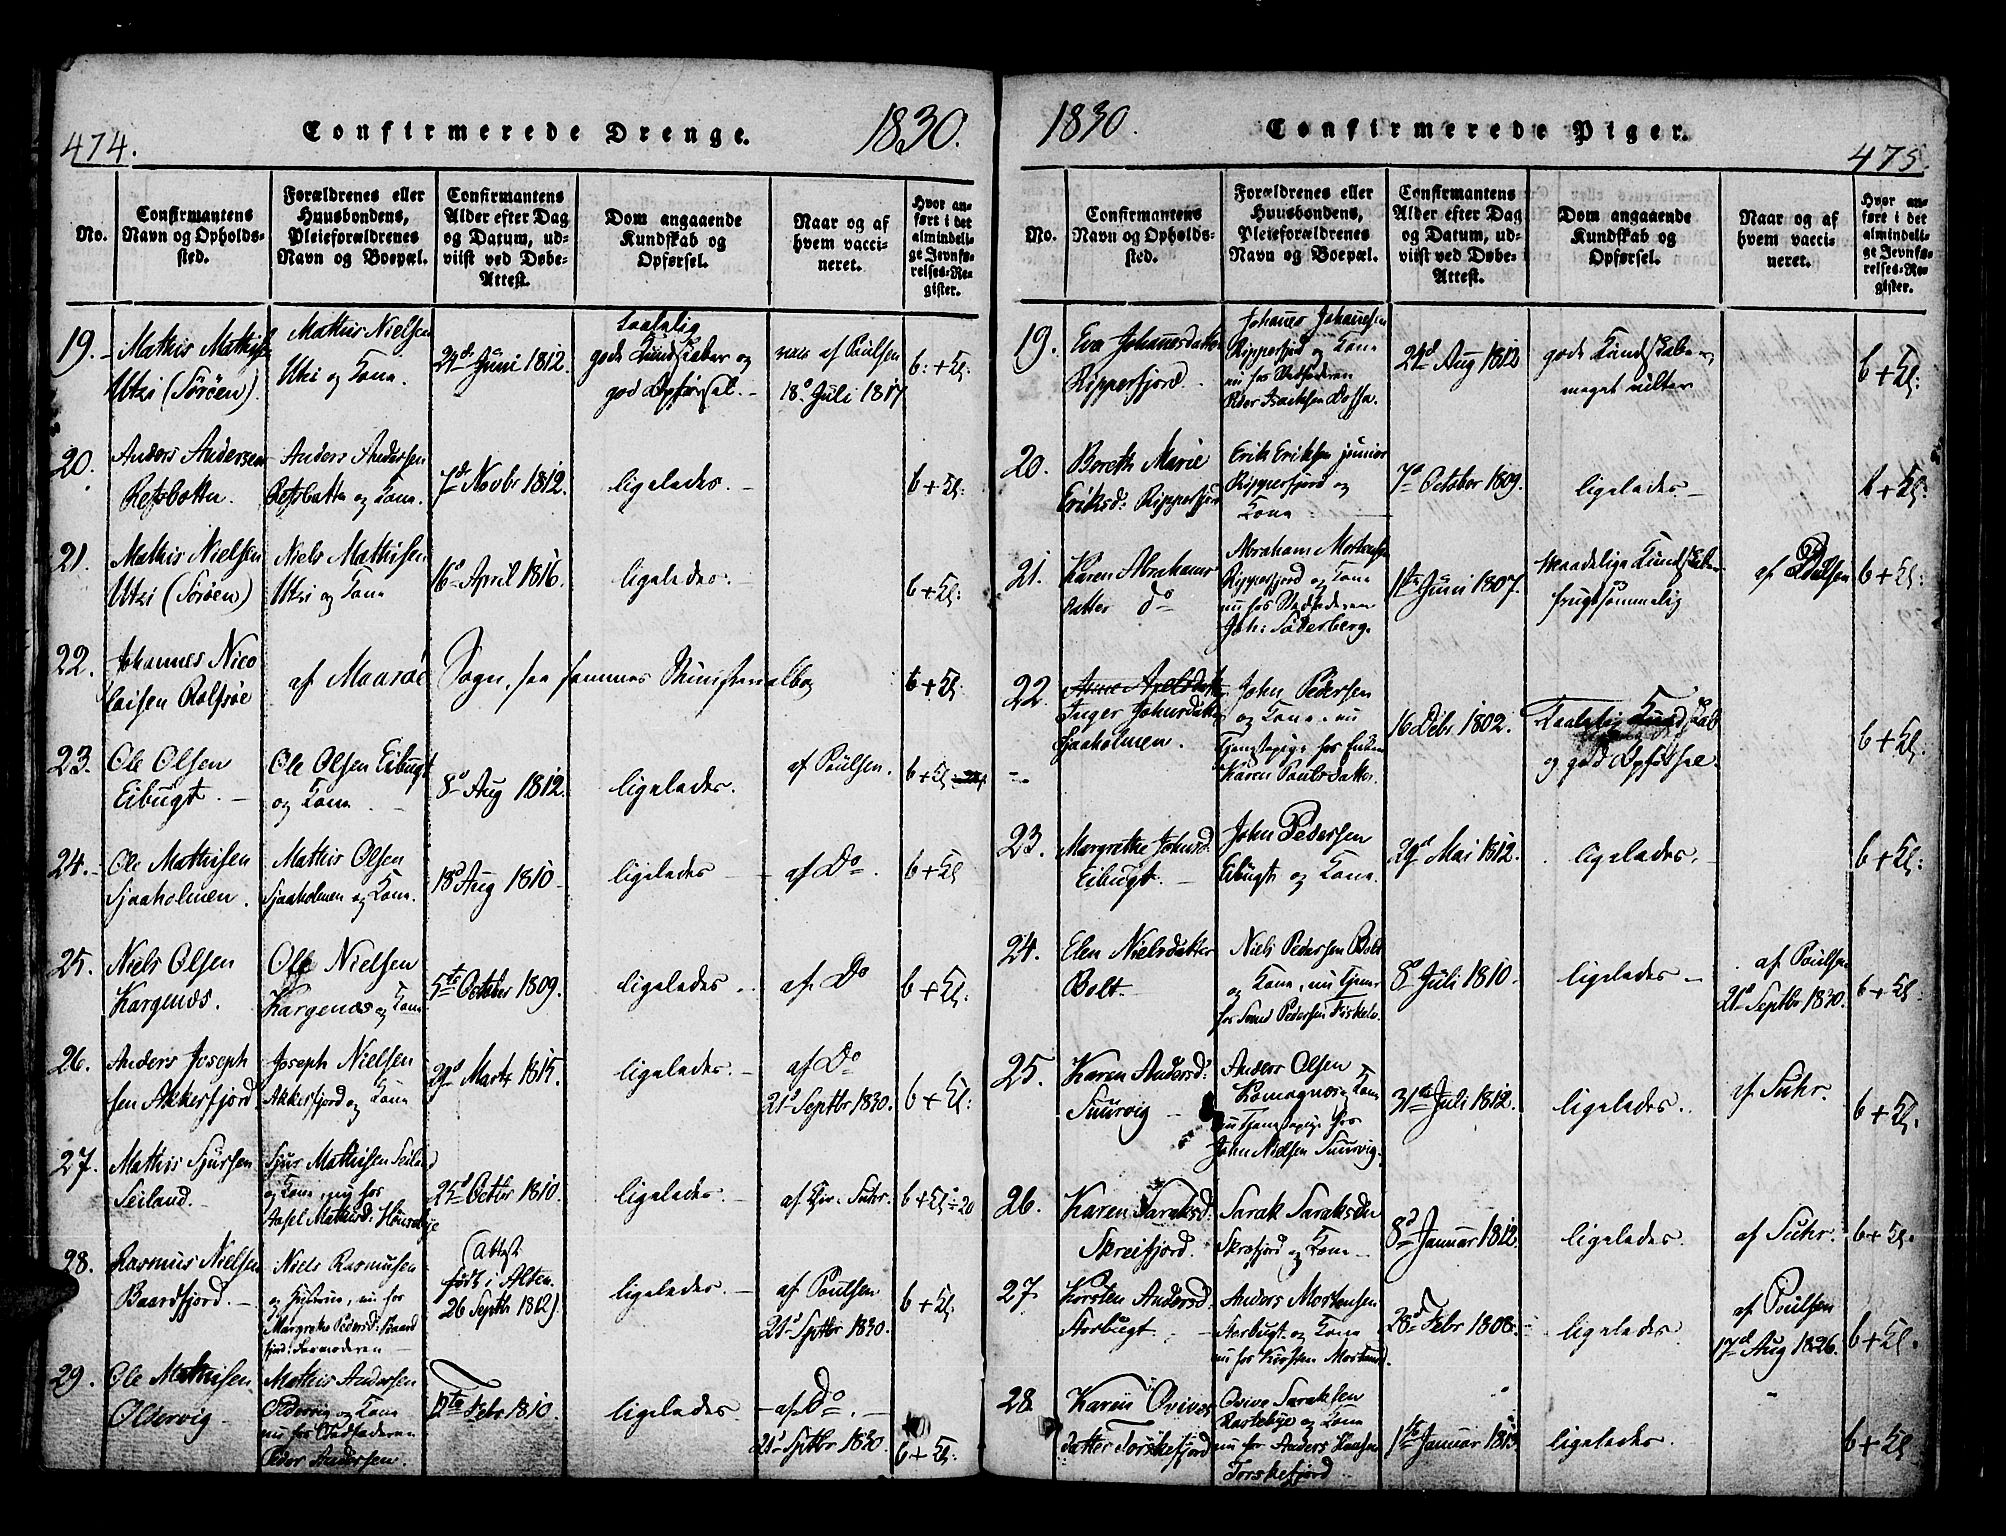 474.
Confirmerede Drenge.
1830.
No.
Confirmantens Navn og Opholds-sted.
Forældrenes eller Huusbondens, Pleieforældrenes Navn og Boepæl.
Confirmantens Alder efter Dag og Datum, ud-viist ved Døbe-Attest.
Dom angaaende Kundskab og Opførsel.
Naar og af hvem vacci-neret.
Hvor an-ført i det almindeli-ge Jevnfø-relses-Re-gister.
19. Mathis Mathisen Utsi (Sørøen). Mathis Nielsen Utsi og Kone. 24de Juni 1812. taalelig gode Kundskaber og god Opførsel. af Poulsen 18d Juli 1817 6:+Kl:
20. Anders Andersen Retsbotten. Anders Andersen Retsbotten og Kone. 7de Novbr 1812. ligelades. 6+Kl:
21. Mathis Nielsen Utsi (Sørøen) Niels Mathisen Utsi og Kone 16d April 1816. ligelades. 6+Kl:
22. Johannes Nico laisen Rolfsøe af Maasøe Sogn, saa sammes Ministerialbog 6+Kl:
23. Ole Olsen Eibugt. Ole Olsen Eibugt og Kone 8d Aug 1812. ligelades. af Poulsen. 6+Kl
24. Ole Mathisen Sjaaholmen. Mathis Olsen Sjaaholmen og Kone. 18d Aug 1810 ligelades af Do. 6+Kl
25. Niels Olsen Kargenæs. Ole Nielsen Kargenæs og Kone 5te October 1809. ligelades. af Do 6+Kl:
26. Anders Joseph sen Akkerfjord. Joseph Nielsen Akkerfjord og Kone 29d Marts 1815. ligelades. af Do 21d Septbr 1830. 6+Kl:
27. Mathis Sjursen Seiland. Sjur Mathisen Seiland og Kone, nu hos Aasel Mathisd: Hønsebye 25d Octbr 1810. ligelades. af Chir. Suhr. 6+Kl: 20
28. Rasmus Nielsen Baardfjord. Niels Rasmusen og Hustrue, nu hos Margrethe Pedersd: Baard fjord: Farmoderen (Attest født i Alten 26 Septbr 1812). ligelades. af Poulsen 21d Sptbr 1830. 6+Kl:
29. Ole Mathisen Oldervig Mathis Andersen Oldervig og Kone nu hos Stedfaderen Peder Andersen. 12te Febr 1810. ligelades. af Do. 21d Sptbr 1830. 6+Kl:
1830.
Confirmerede Piger.
475.
No.
Confirmantens Navn og Opholds-sted.
Forældrenes eller Huusbondens, Pleieforældrenes Navn og Boepæl.
Confirmantens Alder efter Dag og Datum, ud-viist ved Døbe-Attest.
Dom angaaende Kundskab og Opførsel.
Naar og af hvem vacci-neret.
Hvor an-ført i det almindeli-ge Jevnfø-relses-Re-gister.
19. Eva Johannesdatter Ripperfjord. Johannes Johannesen Ripperfjord og Kone nu hos Stedfaderen Peder Isachsen 24d Aug 1812 gode Kundskaber, meget 6+Kl:
20. Boreth Marie Eriksd: Ripperfjord Erik Eriksen junior Ripperfjord og Kone 7d October 1809. ligelades 6+Kl:
21. Karen Abrahams datter do Abraham Mortensen Ripperfjord og Kone nu hos Stedfaderen Joh: Söderberg. Juni 1807. maadelige Kundskaber frugtsommelig af Poulsen 6+Kl:
22. Inger Johnsdatter Sjaaholmen. John Pedersen og Kone. nu Tjenestepige hos Enken Karen Poulsdatter. 16 Debr 1802. Taalelig Kundskab og god Opførsel. 6+Kl:
23. Margrethe Johnsd: Eibugt. John Pedersen Eibugt og Kone. 29d Mai 1812. ligelades. 6+Kl:
24. Elen Nielsdatter Bolt. Niels Pedersen Bolt og Kone, nu tjener hos Svend Pedersen 8d Juli 1810. ligelades af Poulsen 21d Septbr 1830. 6+Kl:
25. Karen Andersd: Suurvig Anders Olsen Komagnæs og Kone nu Tjenestepige hos John Nielsen Suurvig. 31te Juli 1812. ligelades. af Suhr. 6+Kl.
26. Karen Saraksd: Skreifjord. Sarak Saraksen Skreifjord og Kone 8d Januar 1812. ligelades. af Suhr. 6+Kl.
27. Kirsten Andersd: Storbugt. Anders Mortensen Storbugt og Kone nu hos Kirsten 28d Febr 1808. ligelades. af Poulsen 17d Aug 1826. 6+Kl.
28. Karen Ovives datter Torskefjord Ovive Saraksen og Kone nu hos Anders Torskefjord 1ste Januar 1813. ligelades. " 6+Kl